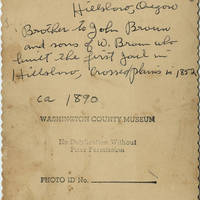 Hillsboro, Oregon
Brother to John Brown
and sons of W. Brown who
built the first jail in
Hillsboro, Crossed plains in 1852
ca 1890
WASHINGTON COUNTY MUSEUM
No Duplication Without
Prior Permission
PHOTO ID No.